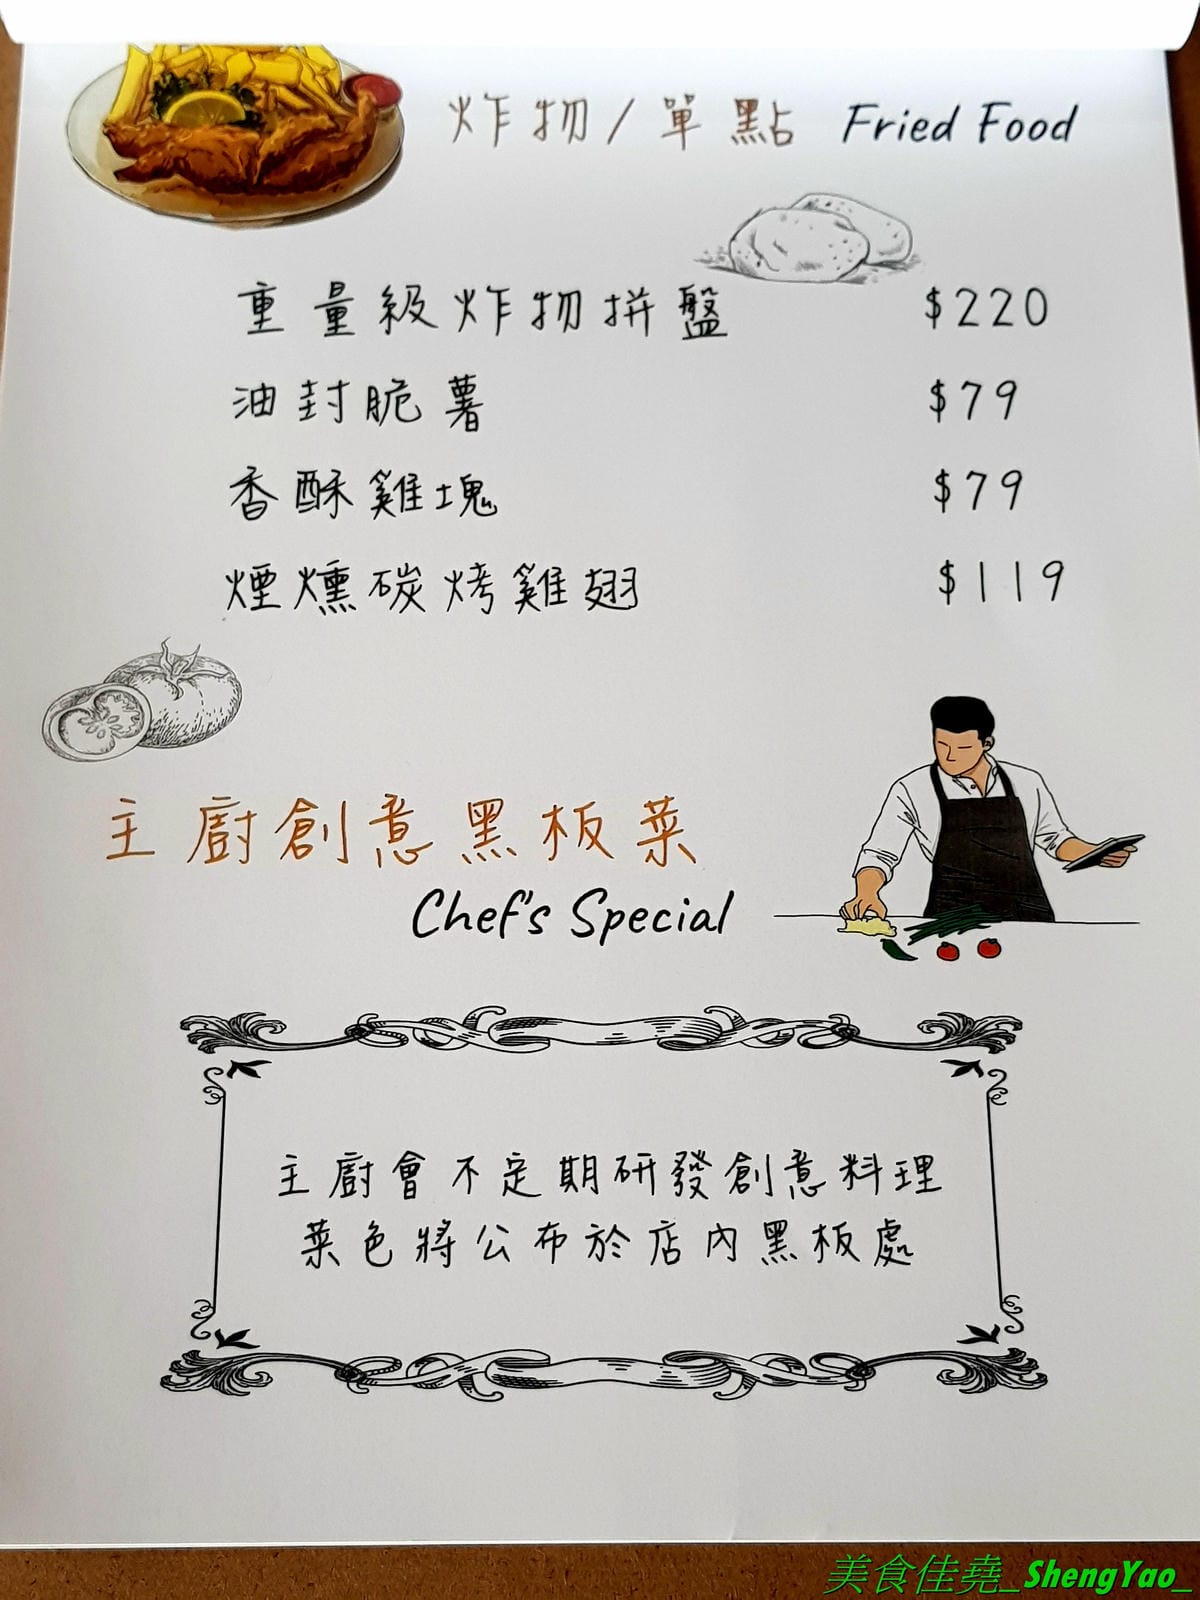 炸物/單點 Fried Food
重量級炸物拼盤 $220
油封脆薯 $79
香酥雞塊 $79
煙燻碳烤雞翅 $119
主廚創意黑板菜
Chef's Special
主廚會不定期研發創意料理
菜色將公布於店內黑板處
美食佳堯_ShengYao_